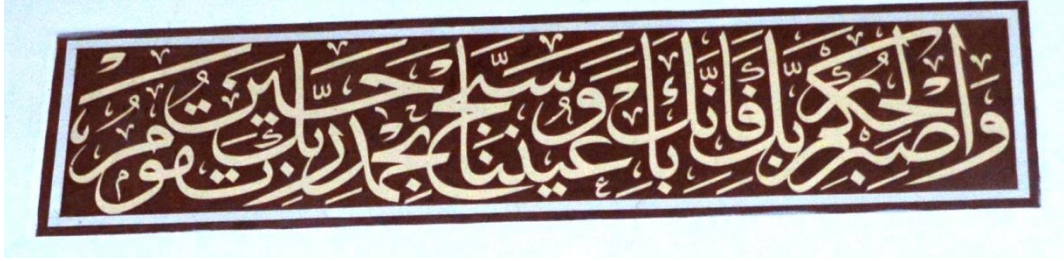 وَاصْبِرْ لِحُكْمِ رَبِّكَ فَإِنَّكَ بِأَعْيُنِنَا وَسَبِّحْ بِحَمْدِ رَبِّكَ حِينَ تَقُومُ